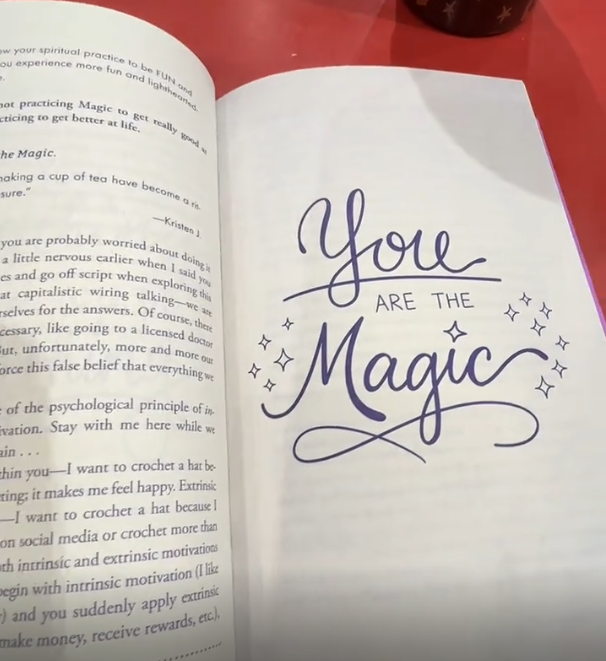 ow your spiritual practice to be FUN and
ou experience more fun and lighthearted
not practicing Magic to get really good at
cticing to get better at life.
he Magic.
naking a cup of tea have become a rit-
sure."
—Kristen J.
you are probably worried about doing it
a little nervous earlier when I said you
es and go off script when exploring this
at capitalistic wiring talking—we are
rselves for the answers. Of course, there
cessary, like going to a licensed doctor
ut, unfortunately, more and more our
orce this false belief that everything we
of the psychological principle of in-
ivation. Stay with me here while we
ain . . .
thin you—I want to crochet a hat be-
ting; it makes me feel happy. Extrinsic
—I want to crochet a hat because I
on social media or crochet more than
th intrinsic and extrinsic motivations
egin with intrinsic motivation (I like
) and you suddenly apply extrinsic
make money, receive rewards, etc.),
You
ARE THE
Magic